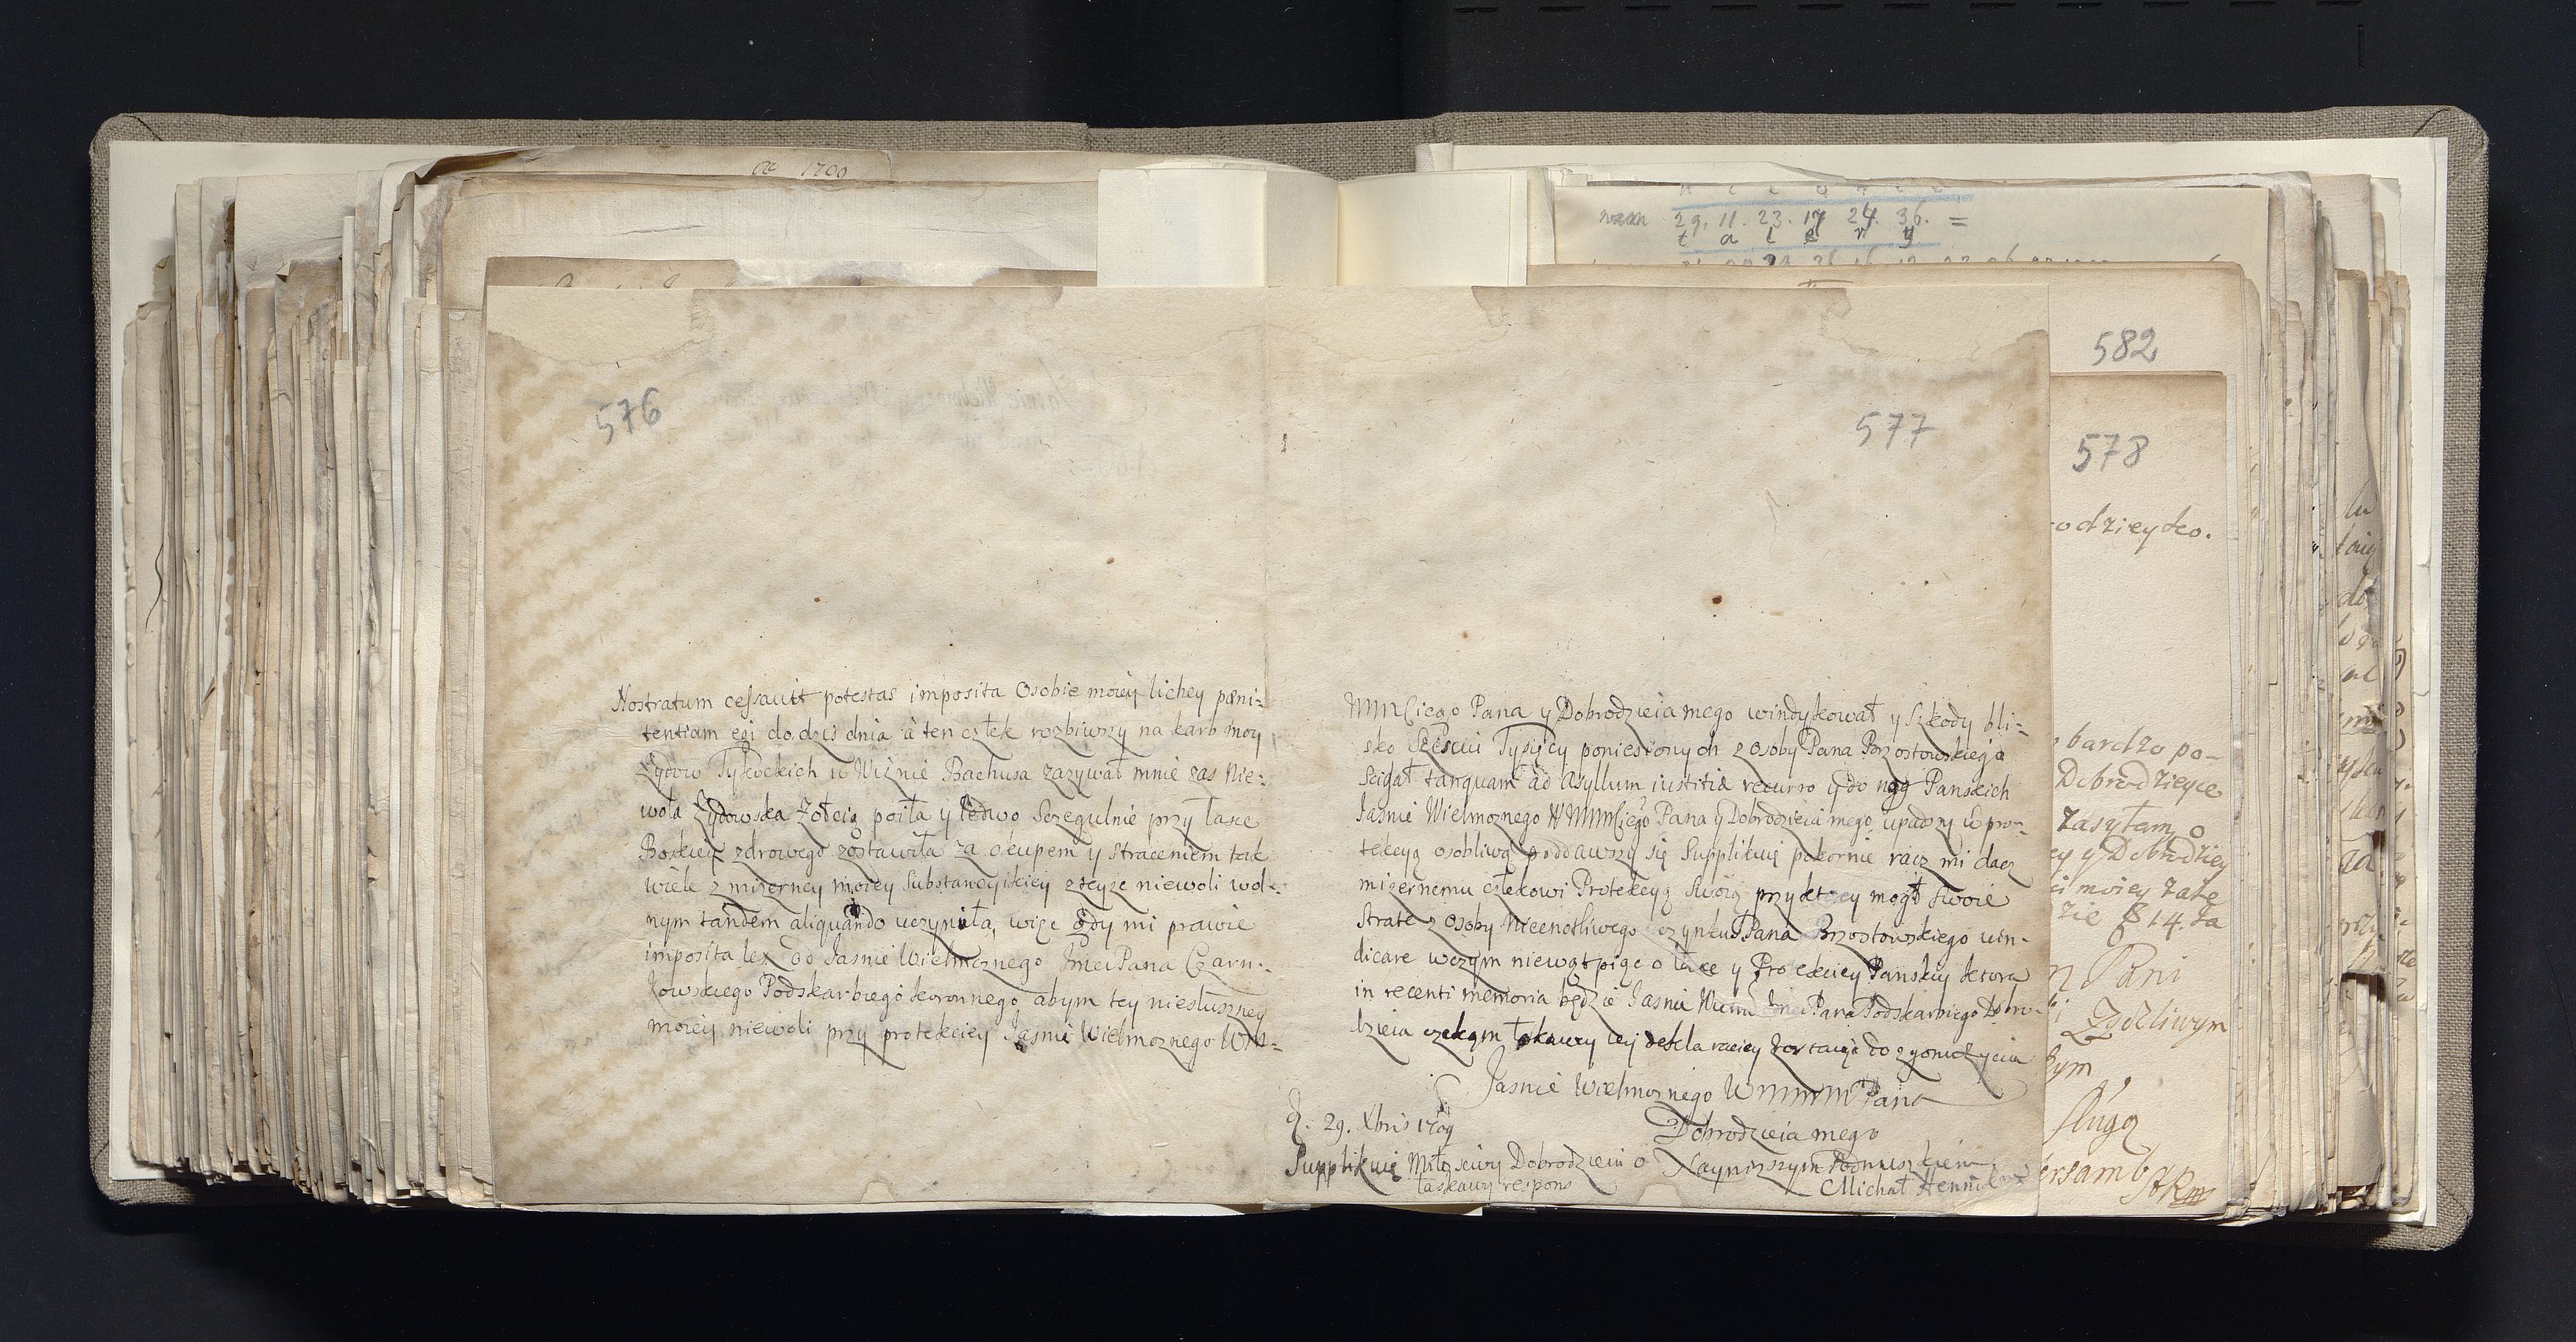 576
Nostratum cessavit potestas imposita Osobie moiey lichey pæni-
tentiam egi do dziś dnia a ten człek rozbiwszy na karb moy
Zydow Tykockich w Wiznie Bachusa zazywał mnie zas Nie-
wola Zydowska Zołcią poiła y ledwo Szczegulnie przy łasce
Boskiey zdrowego zostawiła za okupem y straceniem tak
wiele z mizerney moiey Substancyikiey z teyze niewoli wol-
nym tandem aliquando uczyniła, więc gdy mi prawie
imposita lex do Jasnie Wielmoznego Jmci Pana Czarn-
kowskiego Podskarbiego koronnego abym tey niesłuszney
moiey niewoli przy protekciey Jasnie Wielmoznego WM-
577
MMCiego Pana y Dobrodzieia mego windykował y Szkody bli-
sko Szesciu Tysięcy poniesionych z osoby Pana Brzostowskiego
Scigał tanquam ad Asyllum iustitiæ recurro y do nog Panskich
Jasnie Wielmoznego WMMMCiego Pana y Dobrodzieia mego upadszy w pro-
tekcyą osobliwą poddawszy się Supplikuię pokornie racz mi dac
mizernemu człekowi Protekcyą Swoię przy ktorey mogł swoie
Strate z osoby Niecnotliwego czynku Pana Brzostowskiego win-
dicare w czym niewątpiąc o łasce y Protekciey Panskiey ktora
in recenti memoria będzie Jasnie Pana Podskarbiego Dobro-
dzieia czekam łaskawey iey deklaraciey zostaię do zgonu zycia
Jasnie Wielmoznego WMMMM Pana
Dobrodzieia mego
D. 29. Xbris 1709
Supplikuię Miłosciwy Dobrodzieiu o
łaskawy respons
Naynizszym Podnuszkiem
Michał
582
578
odzieyko.
bardzo po-
Dobrodzieyce
zasyłam o
ey y Dobrodziey
ci moiey Zate
14. ta
Pani
Zyczliwym
bym
sługą
a 1700
29. 11. 23. 17 24. 36. =
t a l e r y